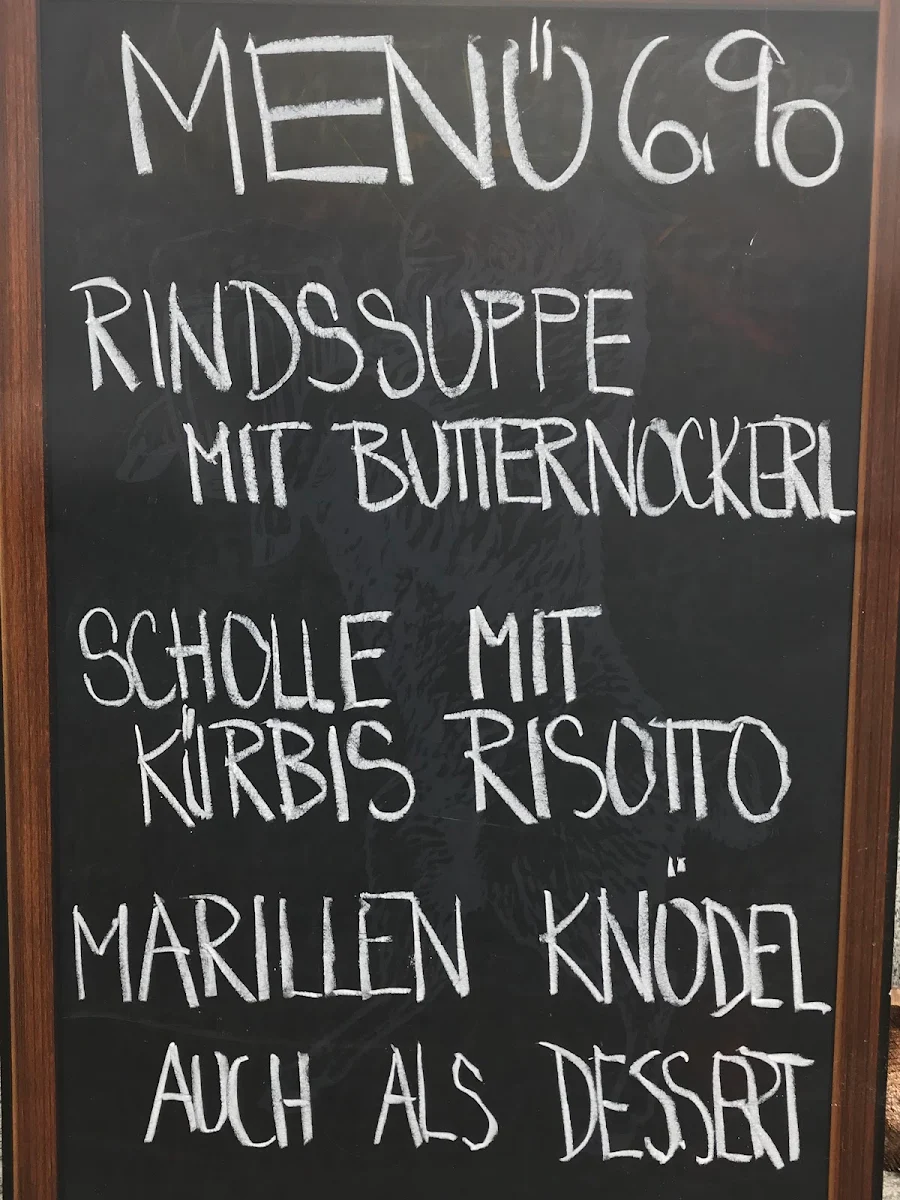 MENÜ 6,90
RINDSSUPPE
MIT BUTTERNOCKERL
SCHOLLE MIT
KÜRBIS RISOTTO
MARILLEN KNÖDEL
AUCH ALS DESSERT